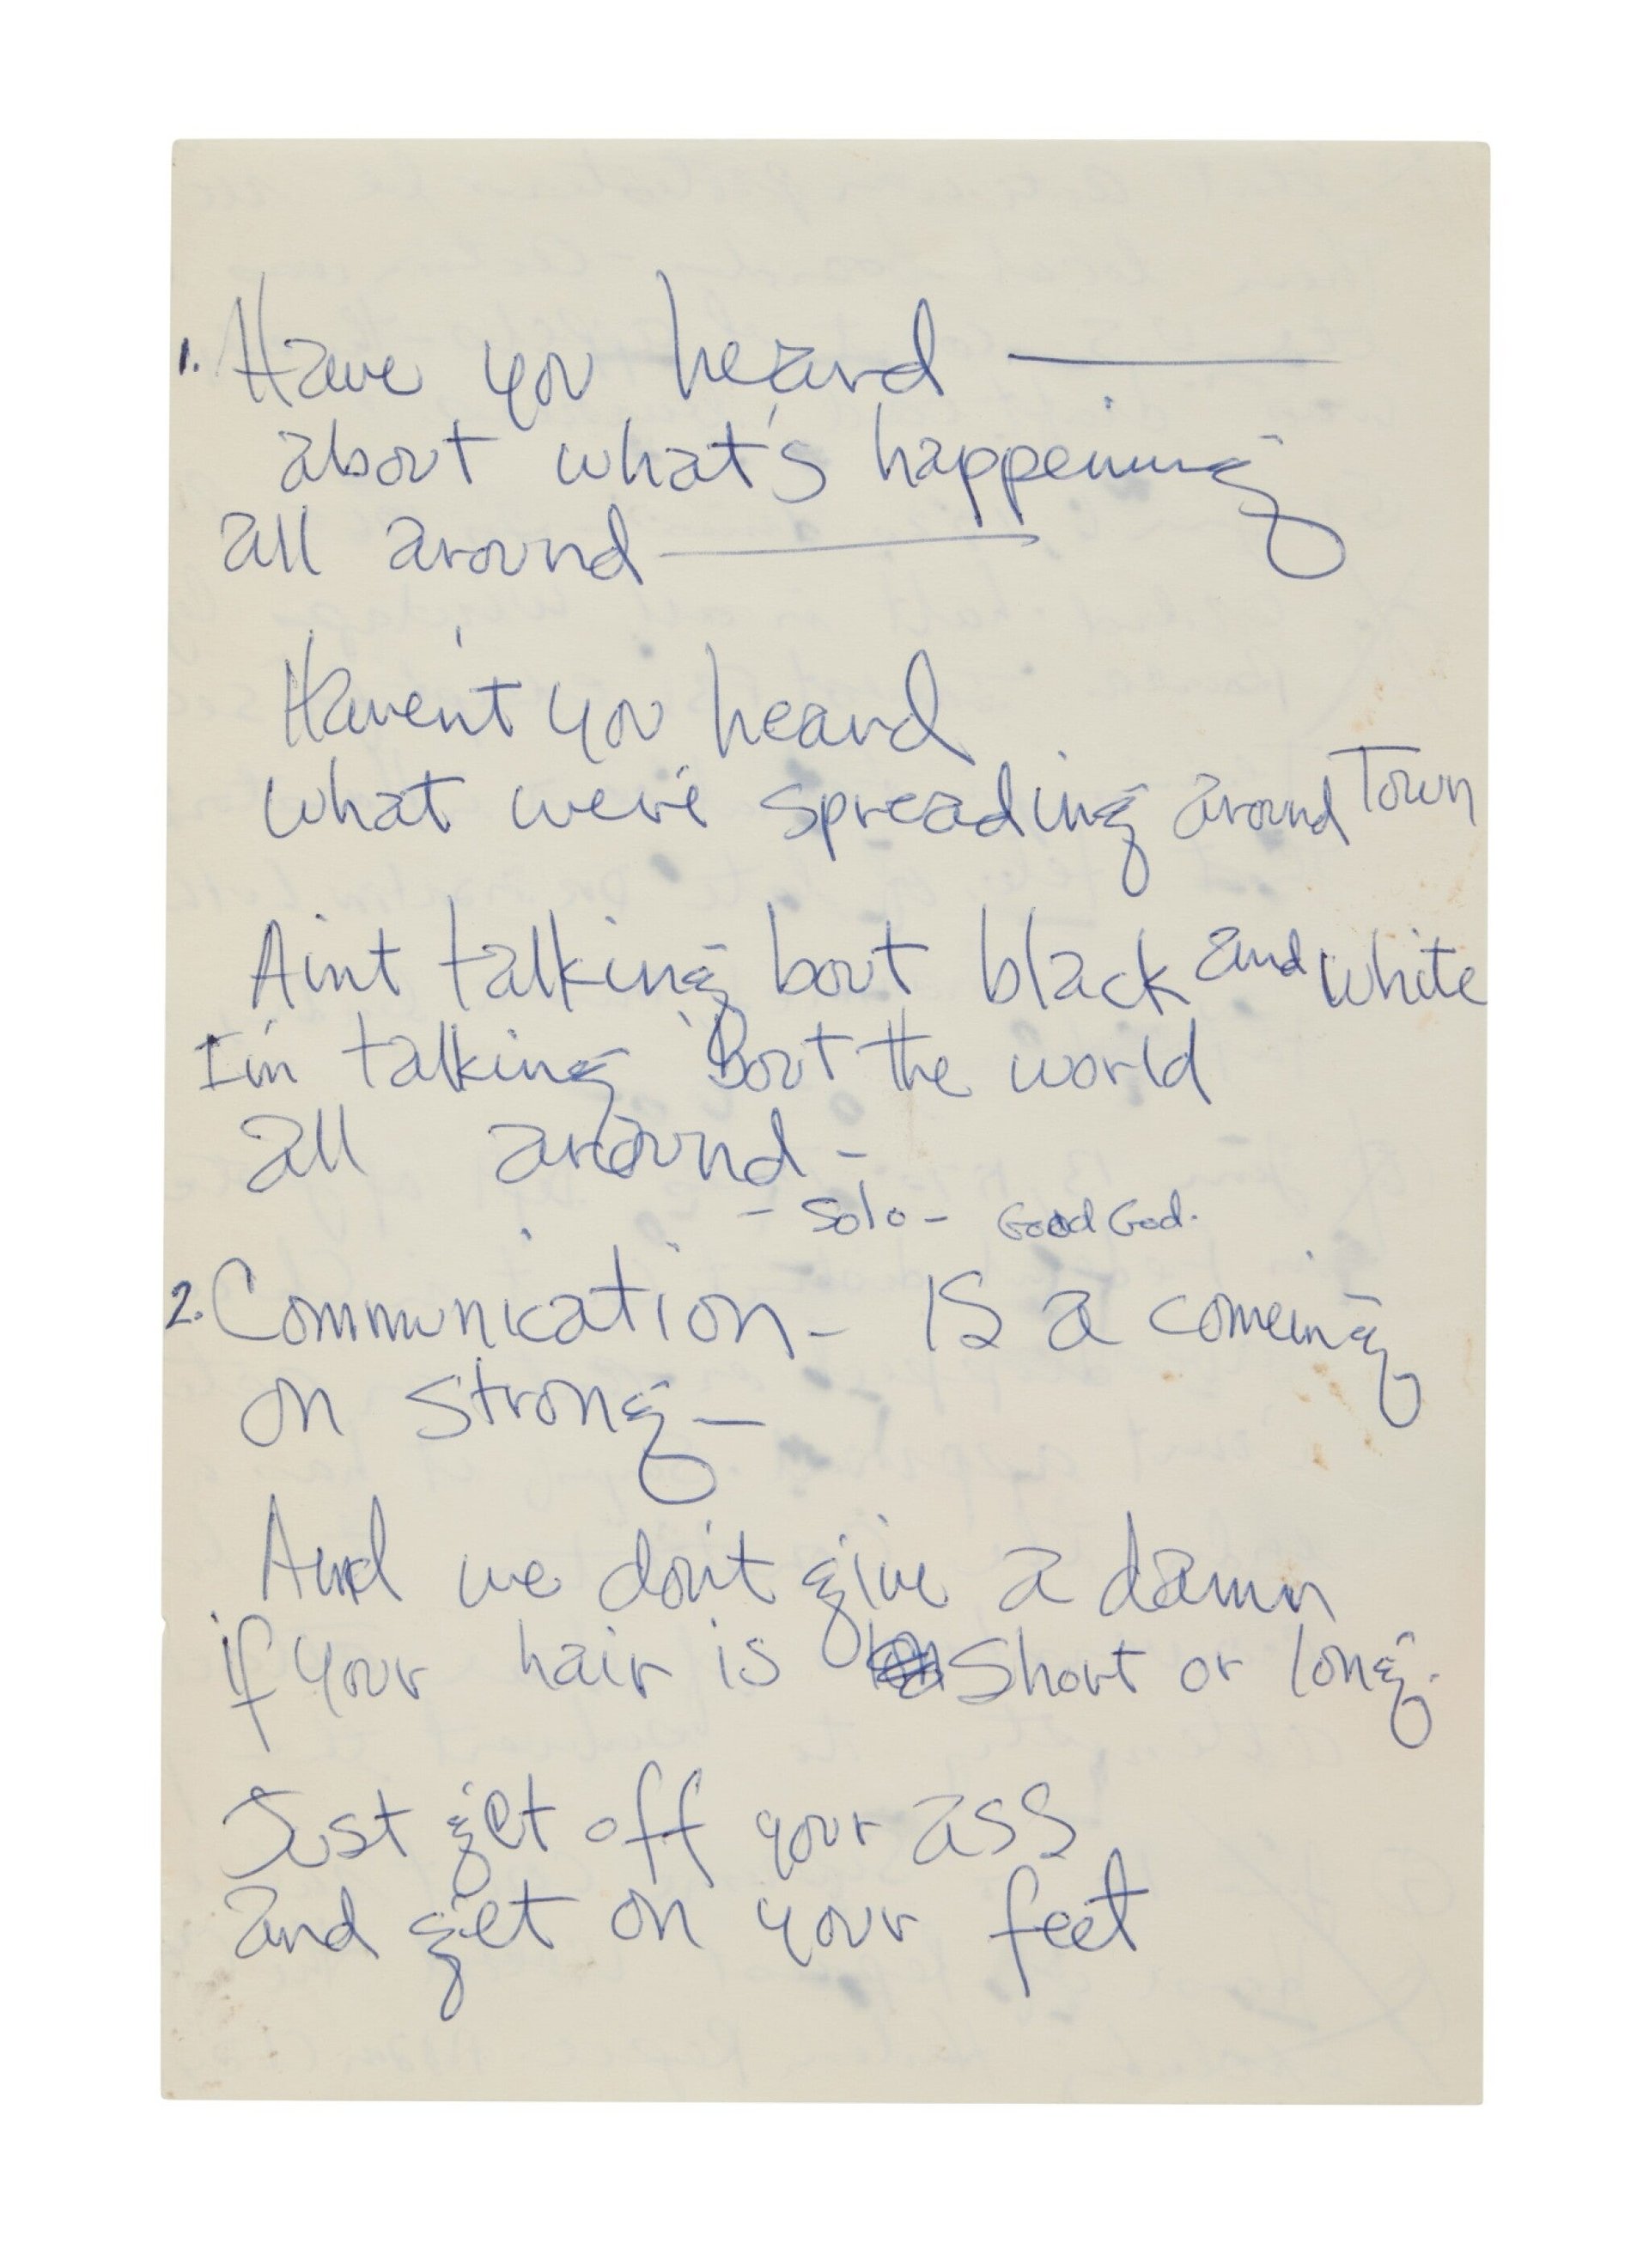 1. Have you heard ———
about what's happening
all around ———
Haven't you heard
what we're spreading around Town
Aint talking bout black and white
I'm talking 'Bout the world
all around -
- Solo - Good God.
2. Communication - IS a comeing
on strong —
And we don't give a damn
if your hair is short or long.
Just get off your ass
and get on your feet